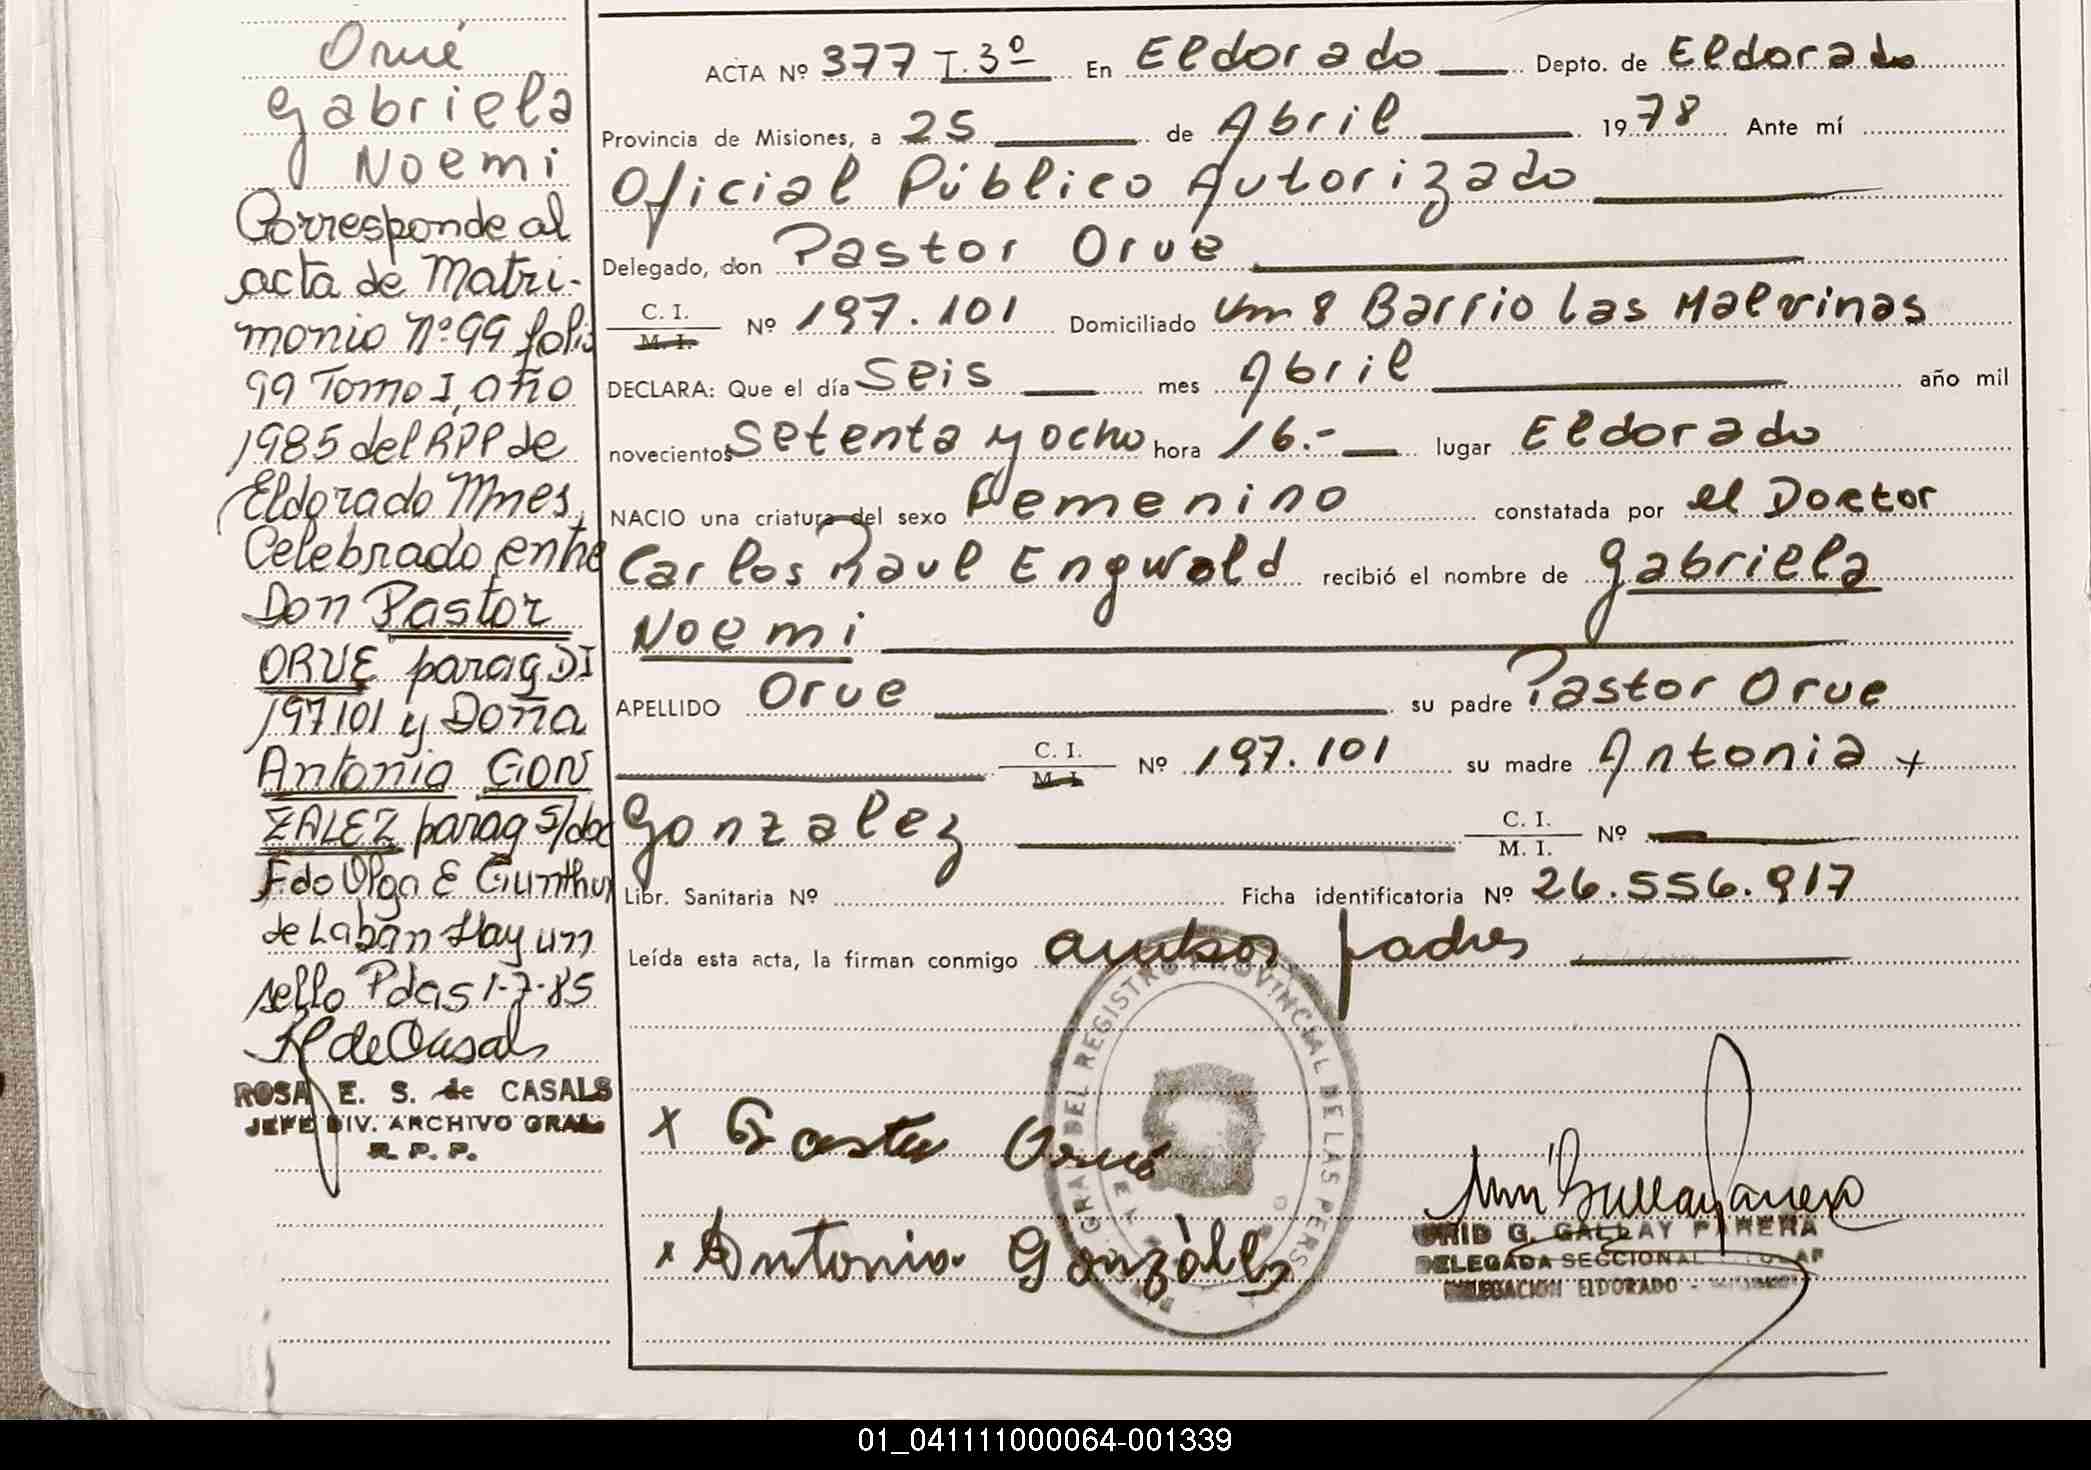 Orué
Gabriela
Noemi
Corresponde al
acta de Matri-
monio Nº 99 folio
99 Tomo I, año
1985 del RPP de
Eldorado Mnes,
Celebrado entre
Don Pastor
ORUE parag DI
197101 y Doña
Antonia GON
ZALEZ parag S/doc
Fdo Olga E Gunther
de Labán Hay un
sello Pdas 1-7-85
ROSA E. S. de CASALS
JEFE DIV. ARCHIVO GRAL.
R. P. P.
ACTA Nº 377 T. 3º En Eldorado Depto. de Eldorado
Provincia de Misiones, a 25 de Abril 1978 Ante mí
Oficial Público Autorizado
Delegado, don Pastor Orue
C. I.
M. I.
Nº 197.101 Domiciliado Km 8 Barrio las Malvinas
DECLARA: Que el día Seis mes Abril año mil
novecientos Setenta y ocho hora 16.- lugar Eldorado
NACIO una criatura del sexo Femenino constatada por el Doctor
Carlos Raul Engwald recibió el nombre de Gabriela
Noemi
APELLIDO Orue su padre Pastor Orue
C. I.
M. I.
Nº 197.101 su madre Antonia +
Gonzalez C. I.
M. I.
Nº
Libr. Sanitaria Nº Ficha identificatoria Nº 26.556.917
Leída esta acta, la firman conmigo ambos padres
GRAL DEL REGISTRO PROVINCIAL DE LAS PERS
x Pastor Orué
x Antonia Gonzàlez
G. GALLAY PARERA
DELEGADA SECCIONAL
DELEGACION ELDORADO -
01_041111000064-001339